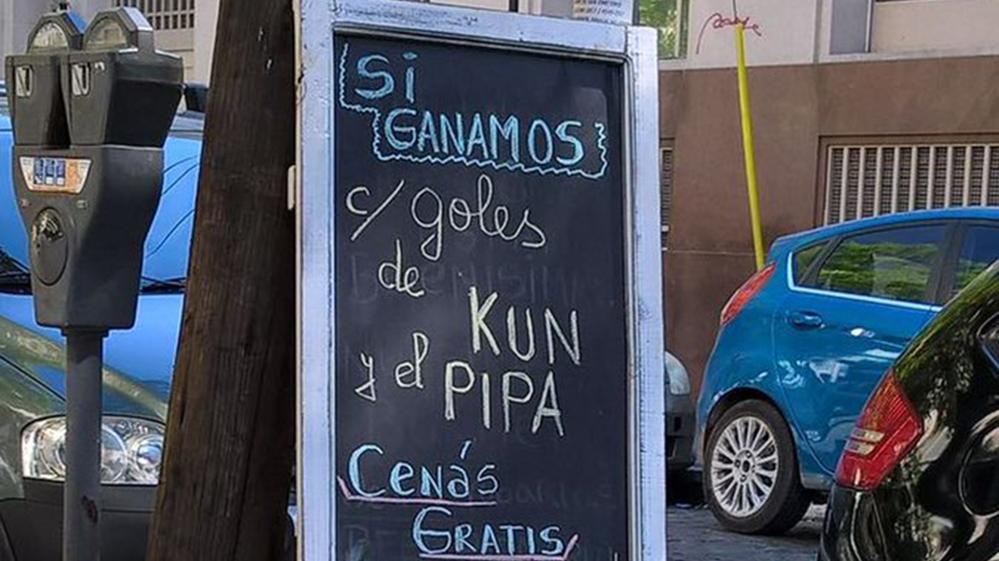 Si
GANAMOS
c/ goles
de
KUN
y el PIPA
Cenás
GRATIS